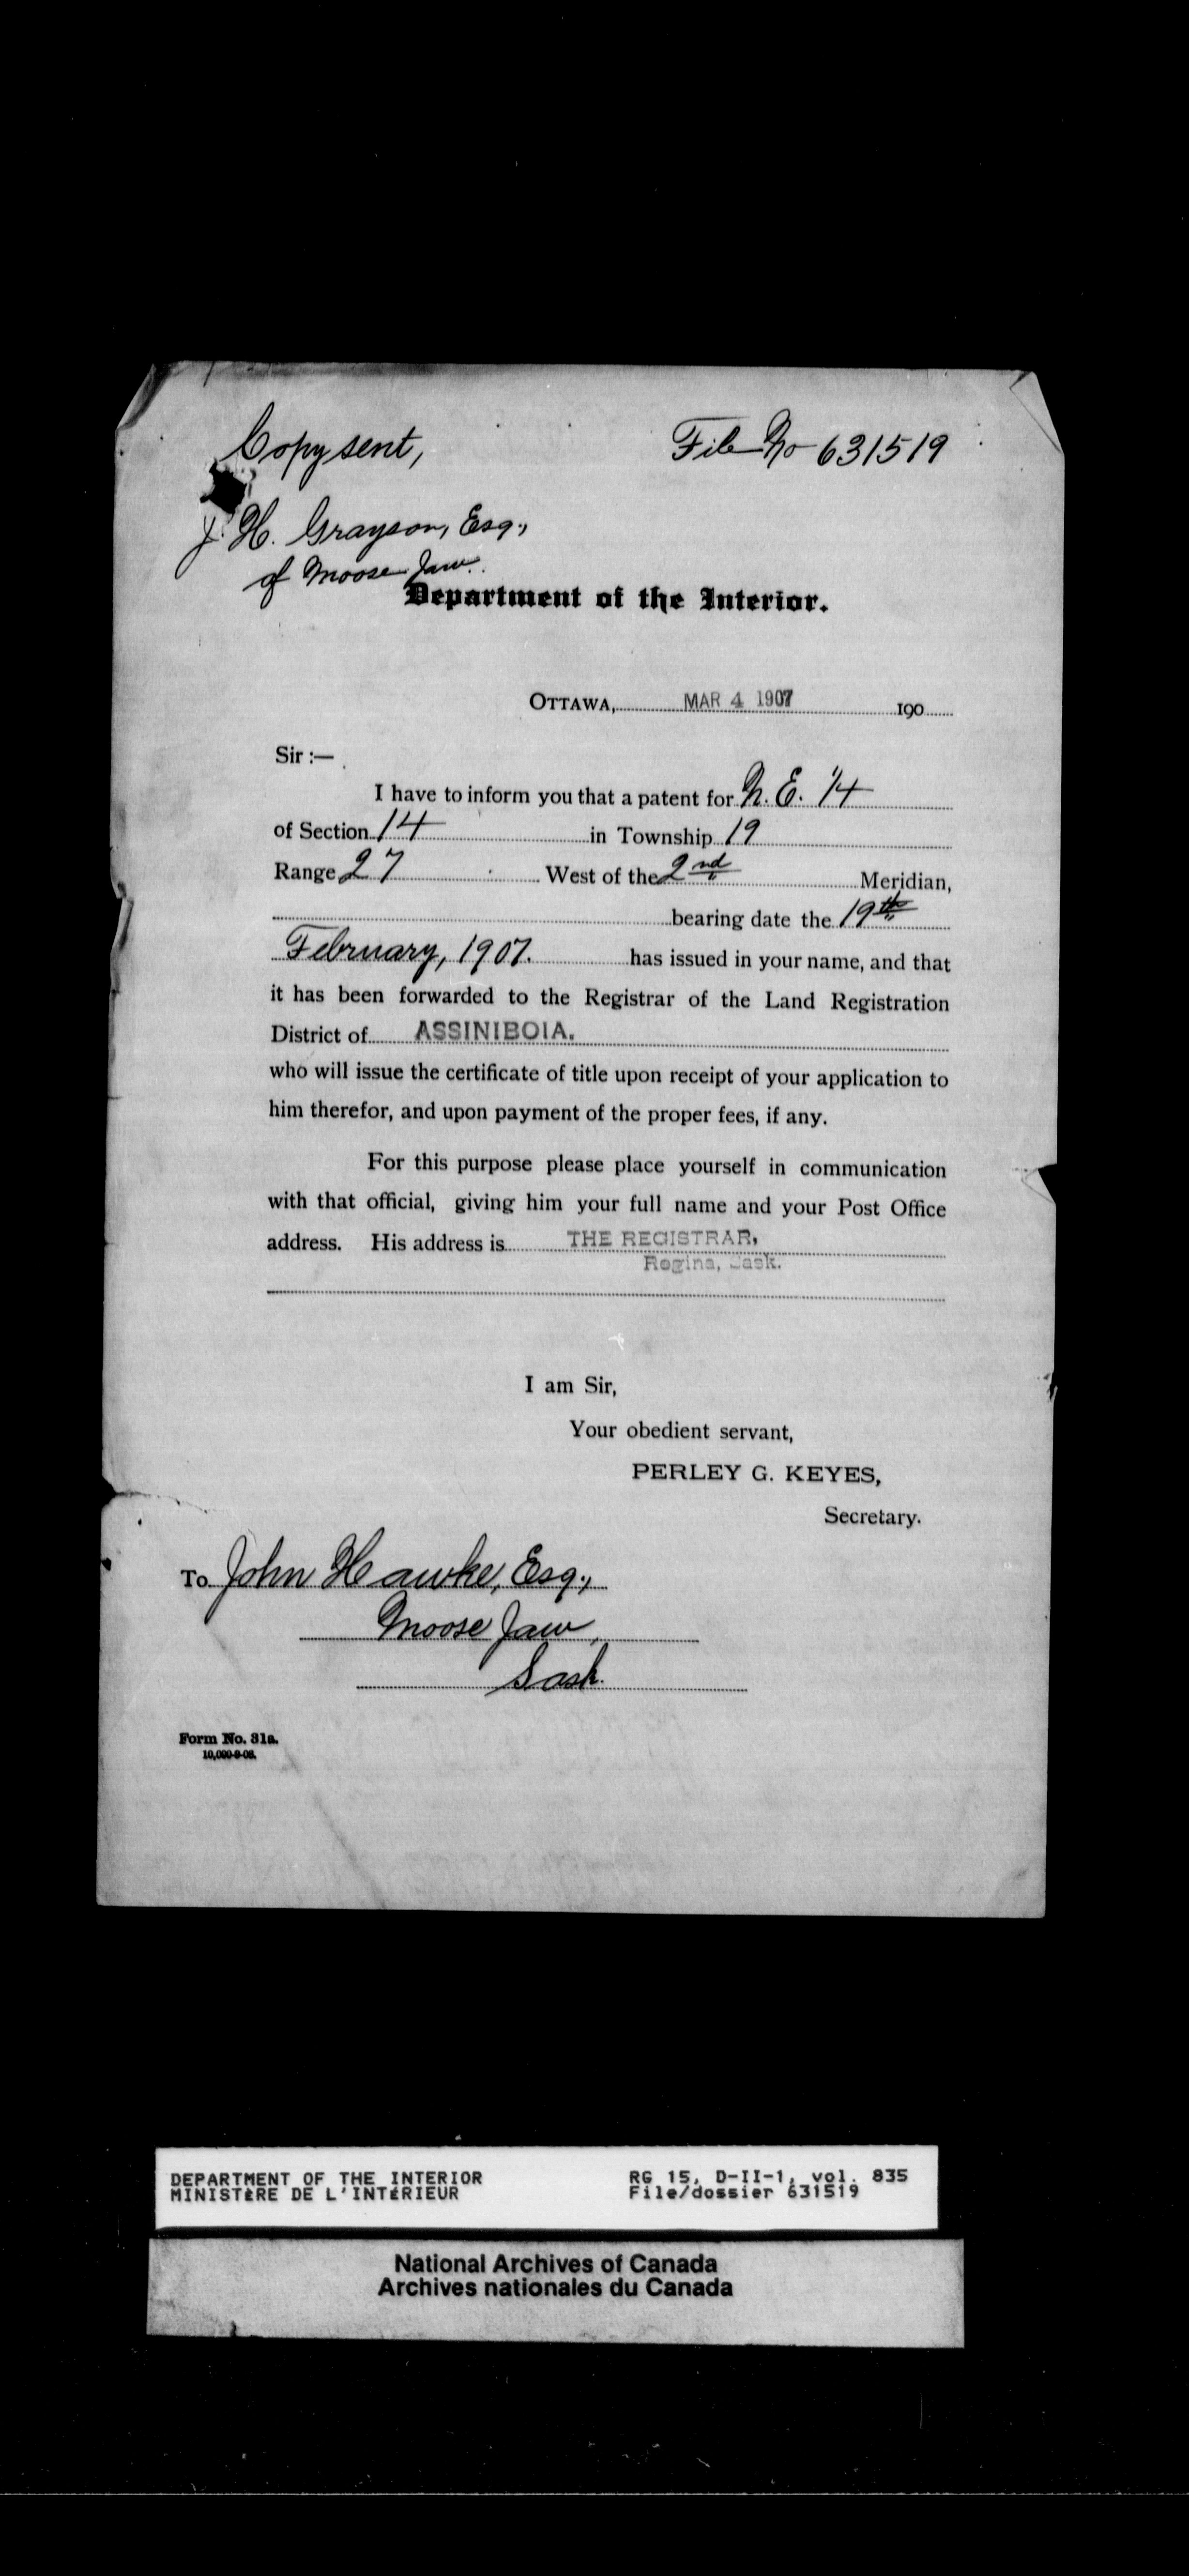 Copy sent,
File No 631519
J. H. Grayson, Esq.,
of Moose Jaw.
Department of the Interior.
OTTAWA, MAR 4 1907 190
Sir :—
I have to inform you that a patent for N. E. 1/4
of Section 14 in Township 19
Range 27 West of the 2nd Meridian,
bearing date the 19th
February, 1907. has issued in your name, and that
it has been forwarded to the Registrar of the Land Registration
District of ASSINIBOIA.
who will issue the certificate of title upon receipt of your application to
him therefor, and upon payment of the proper fees, if any.
For this purpose please place yourself in communication
with that official, giving him your full name and your Post Office
address. His address is THE REGISTRAR,
Regina, Sask.
I am Sir,
Your obedient servant,
PERLEY G. KEYES,
Secretary.
To John Hawke, Esq.,
Moose Jaw,
Sask.
Form No. 31a.
DEPARTMENT OF THE INTERIOR RG 15, D-II-1, vol. 835
MINISTÈRE DE L'INTÉRIEUR File/dossier 631519
National Archives of Canada
Archives nationales du Canada